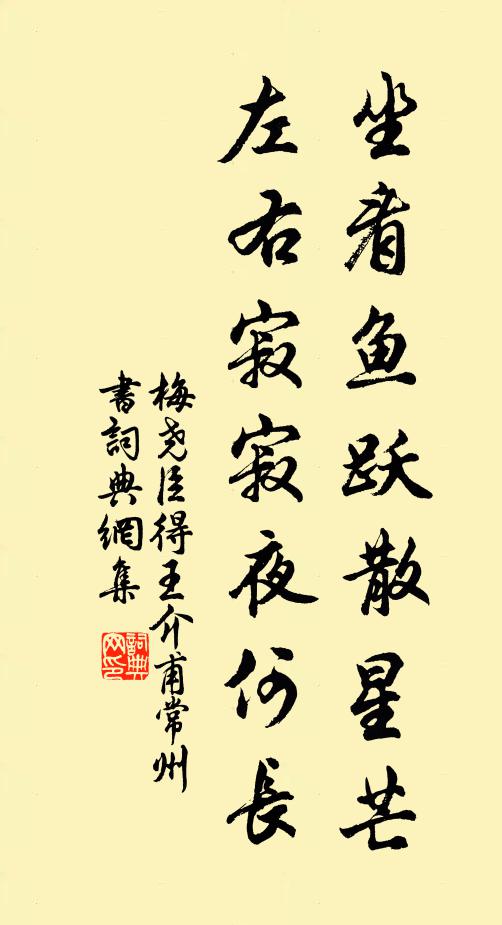 坐看鱼跃散星芒
左右寂寂夜何长
梅尧臣得王介甫常州
书词典网集
詞典
网印